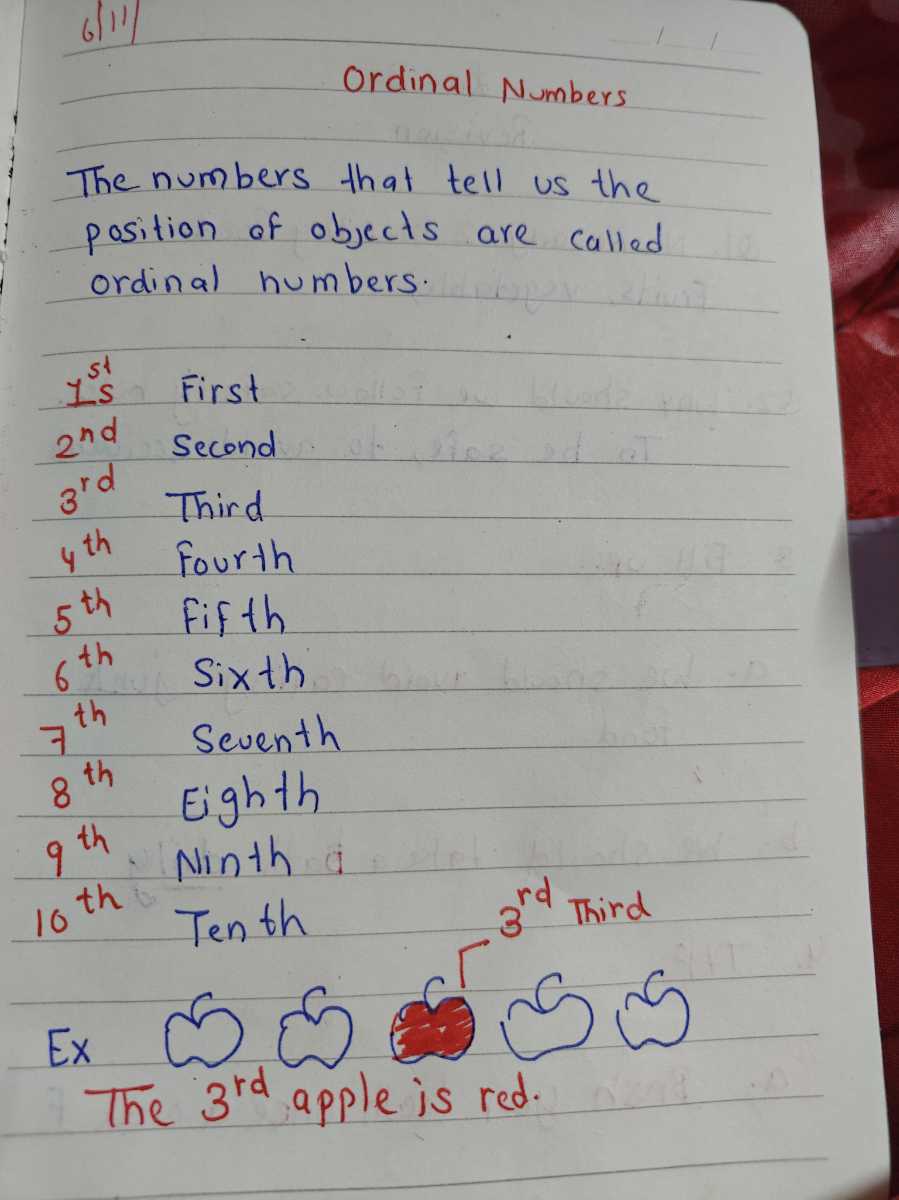 6/11/
Ordinal Numbers
The numbers that tell us the
position of objects are called
ordinal numbers.
1st First
2nd Second
3rd Third
4th Fourth
5th Fifth
6th Sixth
7th Seventh
8th Eighth
9th Ninth
10th Tenth
3rd Third
Ex
The 3rd apple is red.